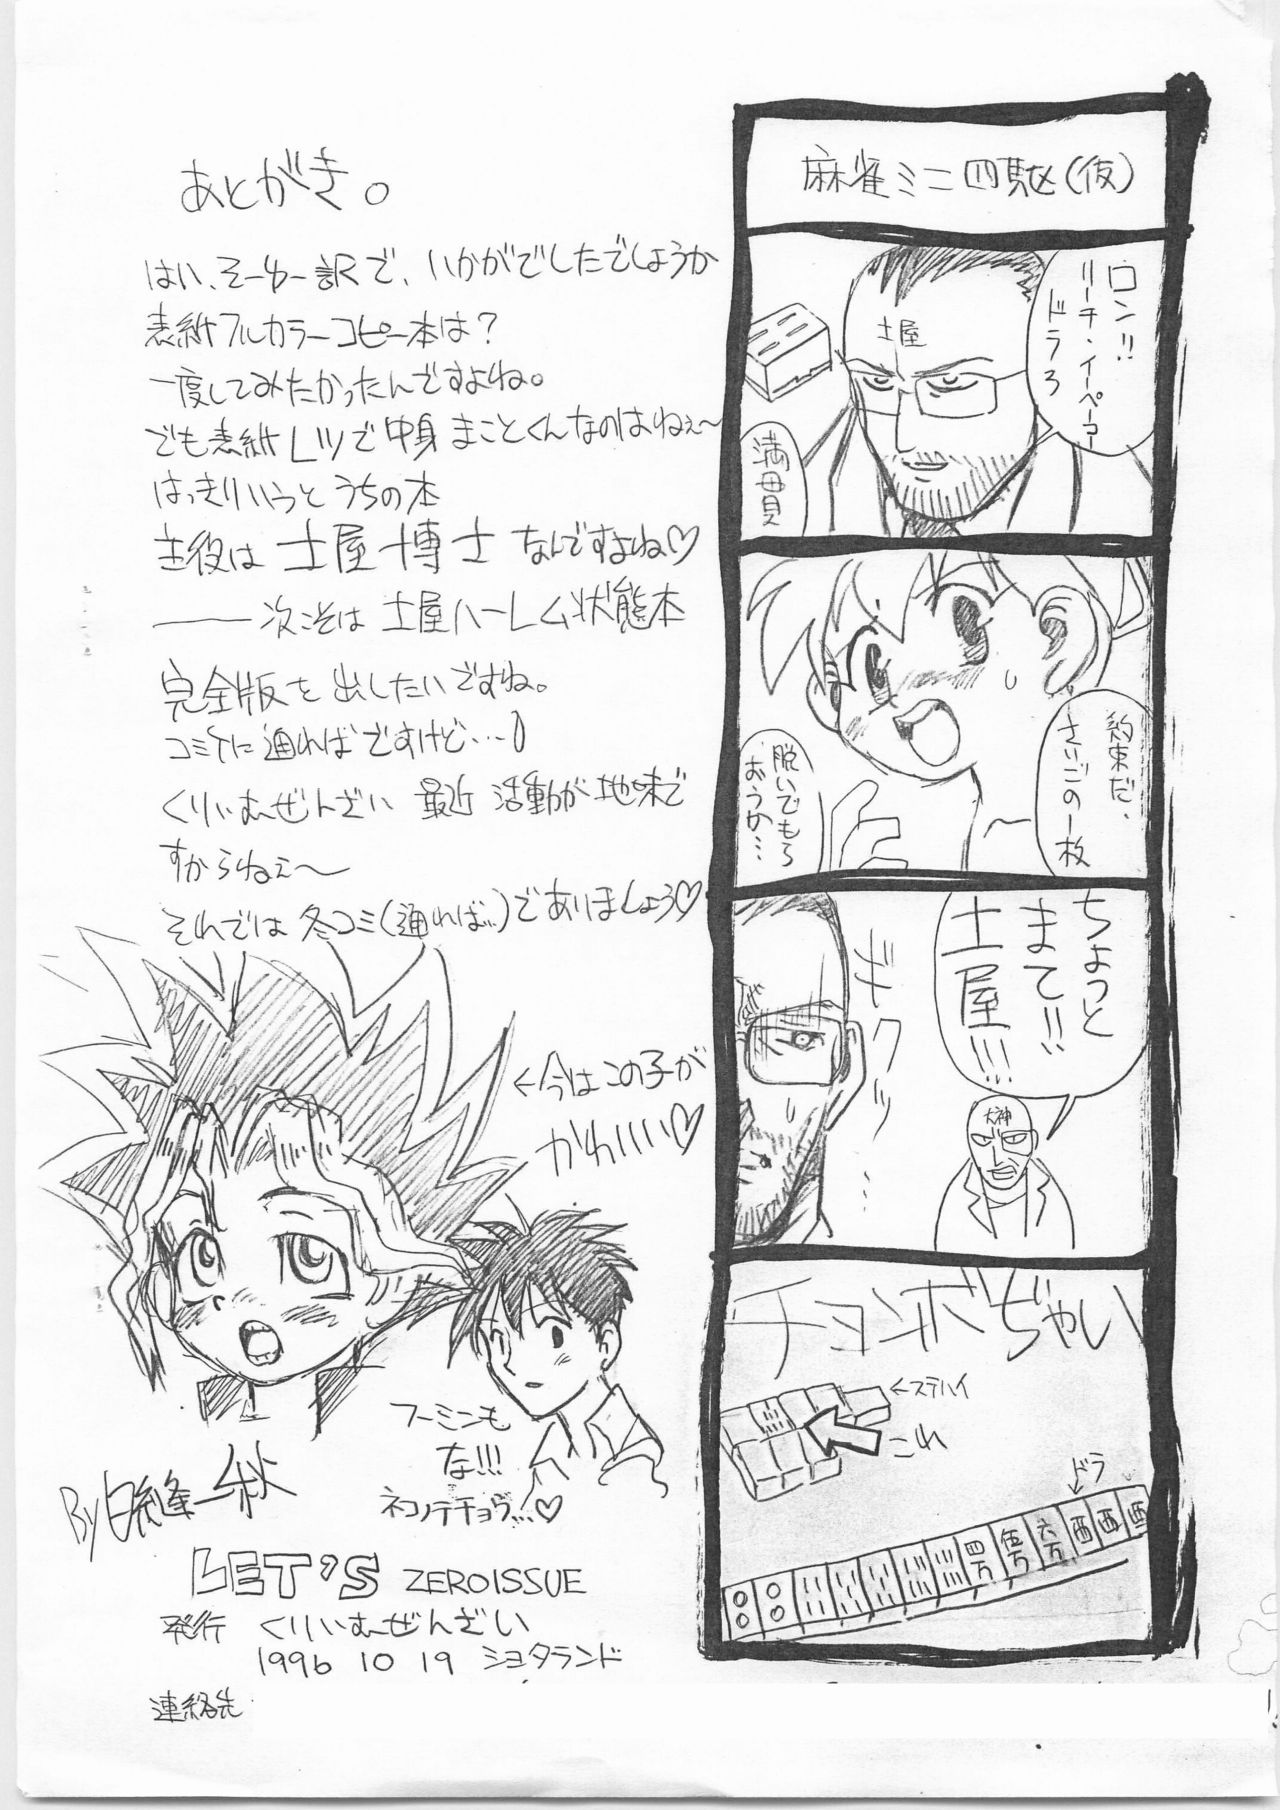 あとがき。
はい、そーゆー訳で、いかがでしたでしょうか
表紙フルカラーコピー本は？
一度してみたかったんですよね。
でも表紙レツで中身まことくんなのはねぇ〜
はっきりいうとうちの本
主役は土屋博士なんですよね♡
――次こそは土屋ハーレム状態本
完全版を出したいですね。
コミケに通ればですけど…
くりいむぜんざい最近活動が地味で
すからねぇ〜
それでは冬コミ(通れば…)であいましょう♡
←今はこの子が
かわいいい♡
フーミンも
な!!!
ネコノテチョウ…♡
By日縫一秋
LET'S ZEROISSUE
発行 くりいむぜんざい
1996 10 19 ショタランド
連絡先
麻雀ミニ四駆(仮)
ロン!!
リーチ・イーペーコー
ドラ3
土屋
満貫
約束だ、
さいごの一枚
脱いでもら
おうか…
ちょっと
まて!!
土屋!!!
ギクッ
…
大神
チョンボぢゃい
←ステハイ
これ
ドラ
四万
伍万
六万
西
西
西